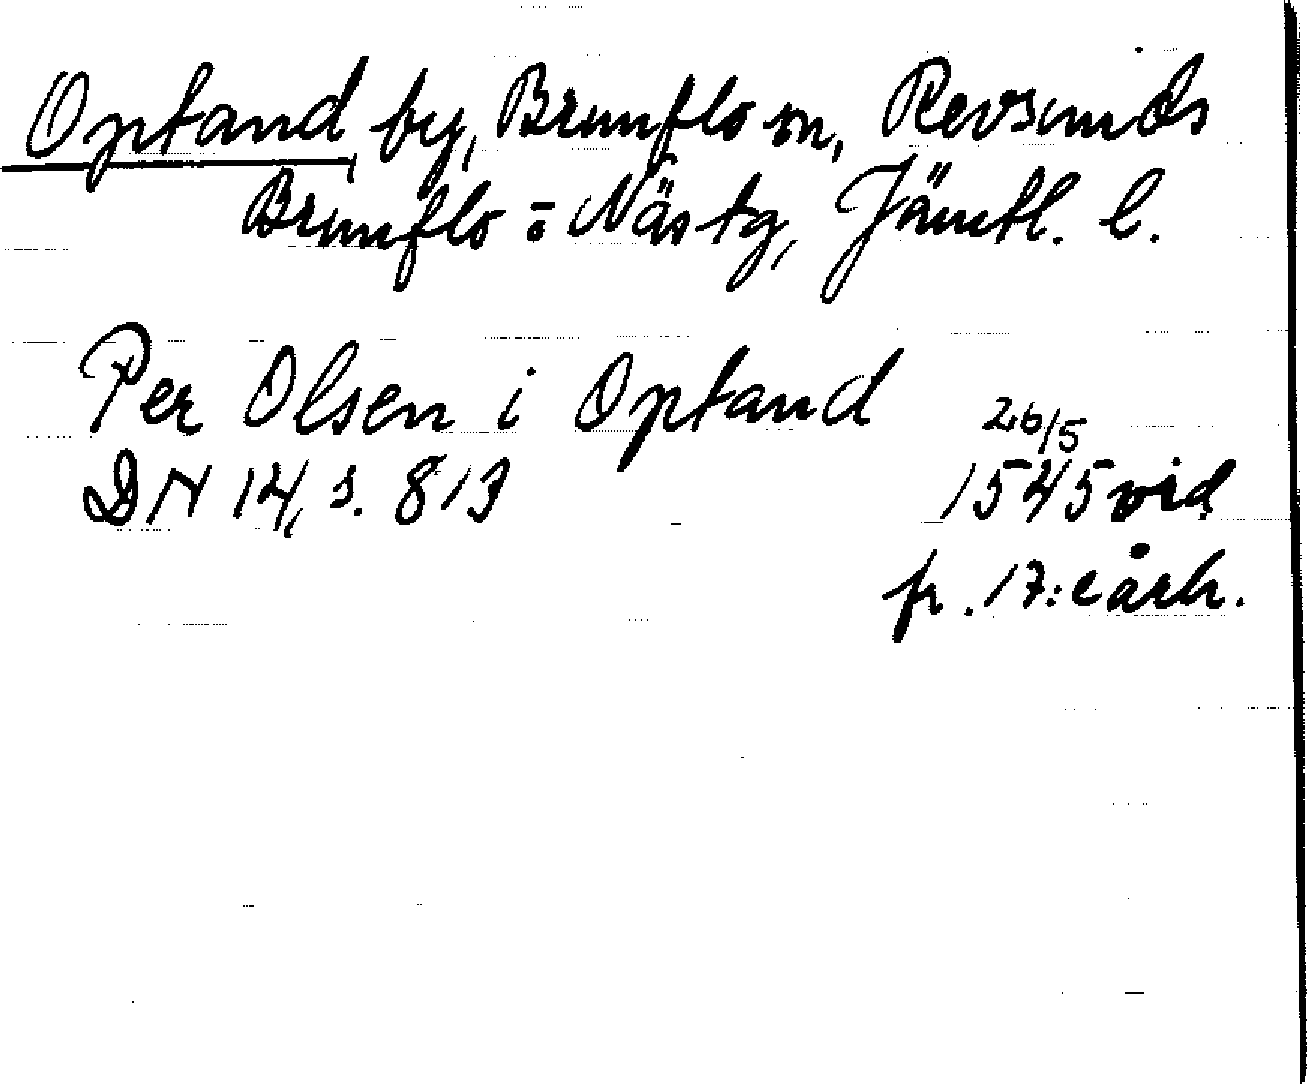 Optand, by, Brunflo sn, Revsunds
Brunflo o Näs tg, Jämtl. l.
Per Olsen i Optand 26/5
DN 14, s. 813 1545 vid.
fr. 17:e årh.